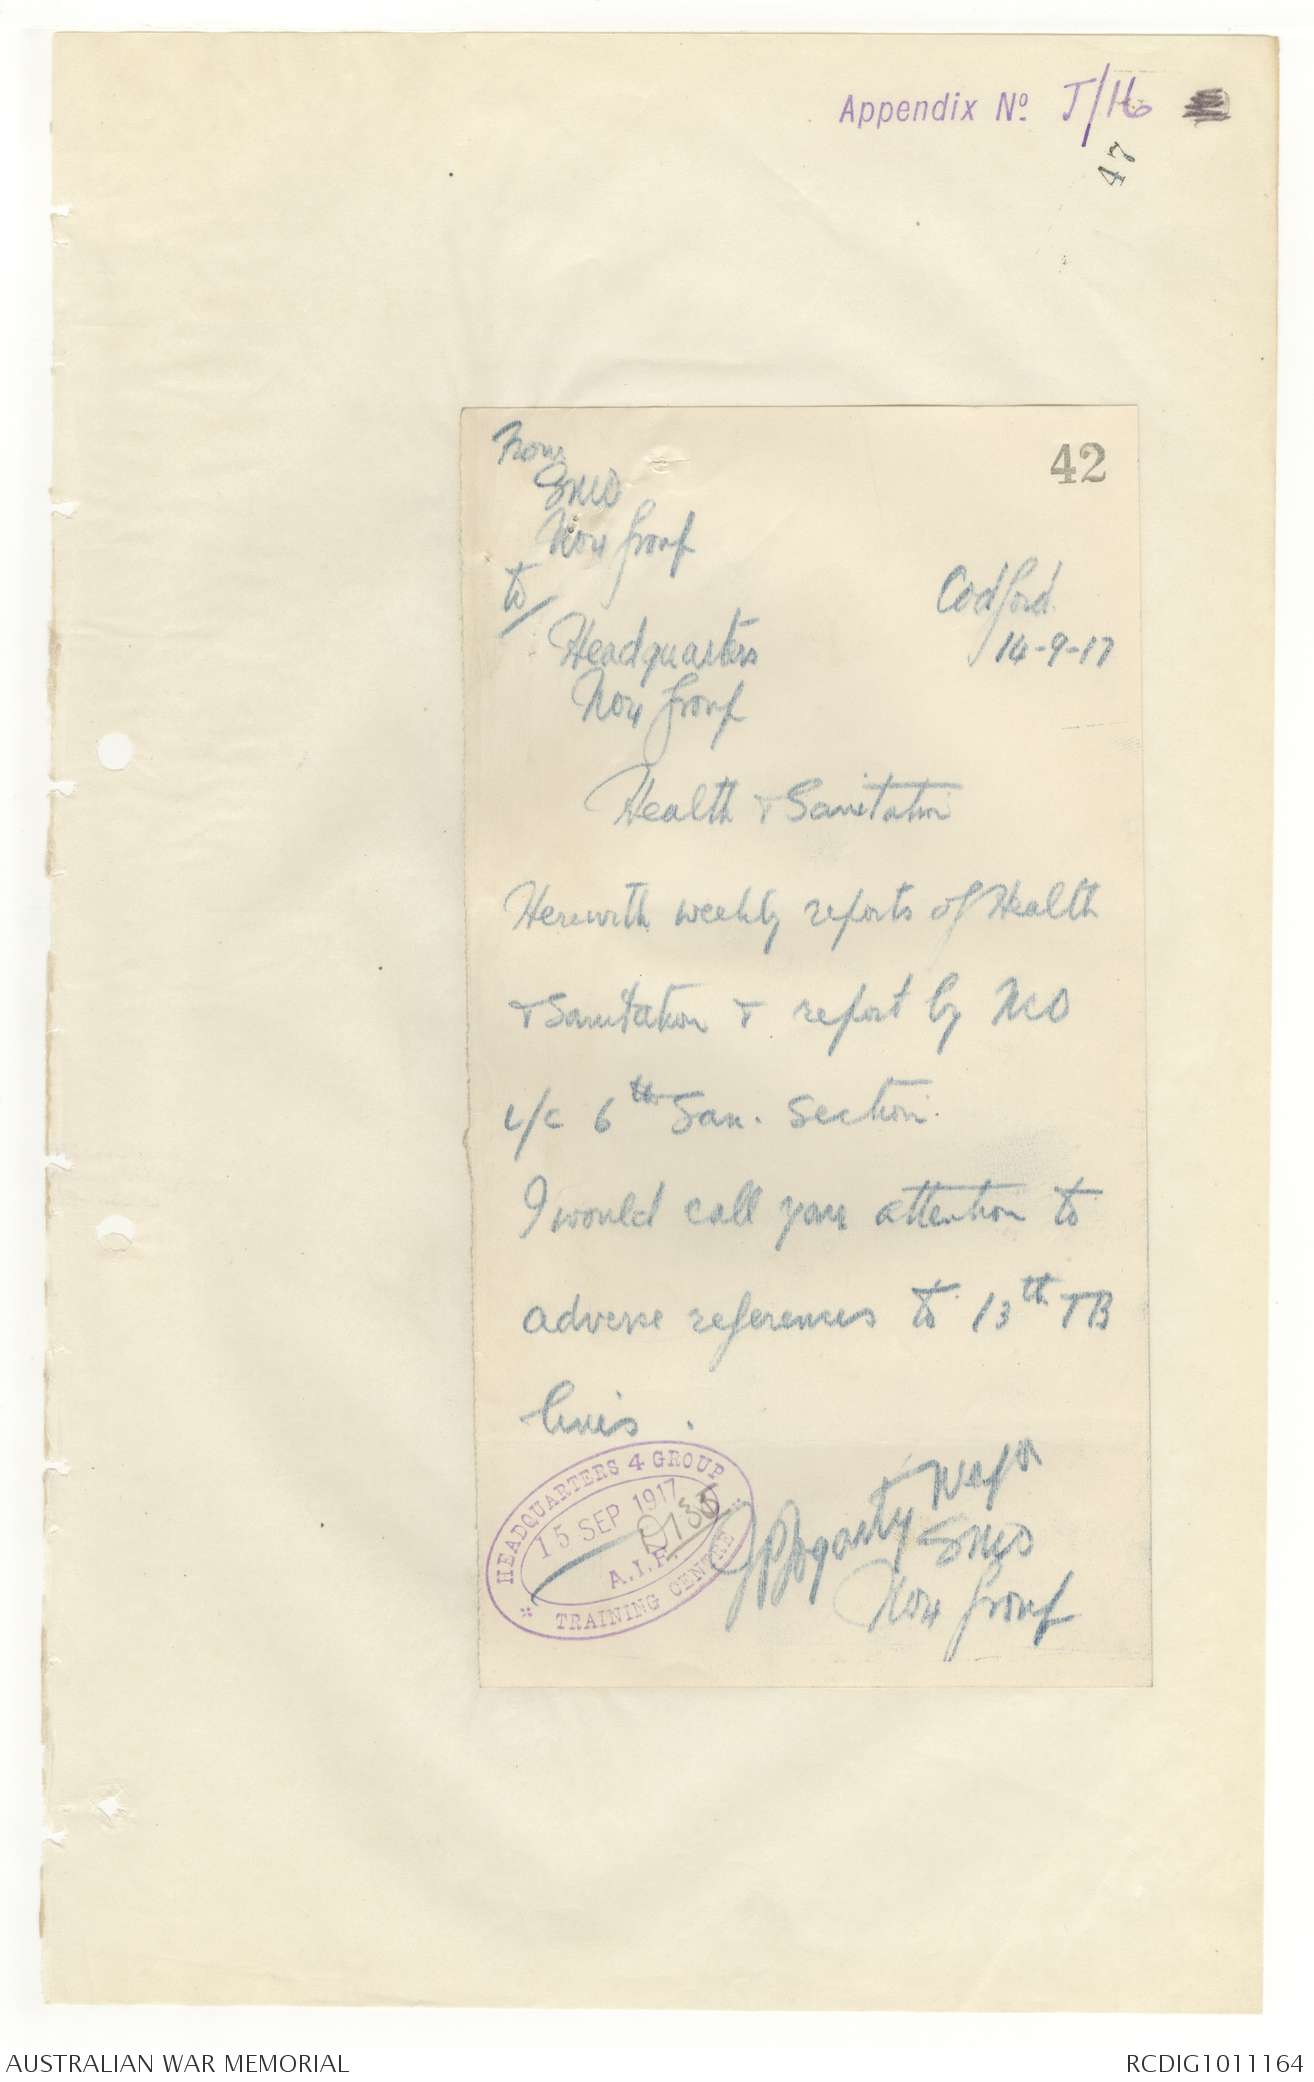 Appendix Nº J/16
47
42
From
SMO
No 4 Group
to/
Codford
14-9-17
Headquarters
No 4 Group
Health & Sanitation
Herewith weekly reports of Health
& Sanitation & report by MO
i/c 6th San. Section.
I would call your attention to
adverse references to 13th TB
lines.
HEADQUARTERS 4 GROUP
15 SEP 1917
A.I.F.
TRAINING CENTRE
Fogarty Major
SMO
No 4 Group
AUSTRALIAN WAR MEMORIAL
RCDIG1011164